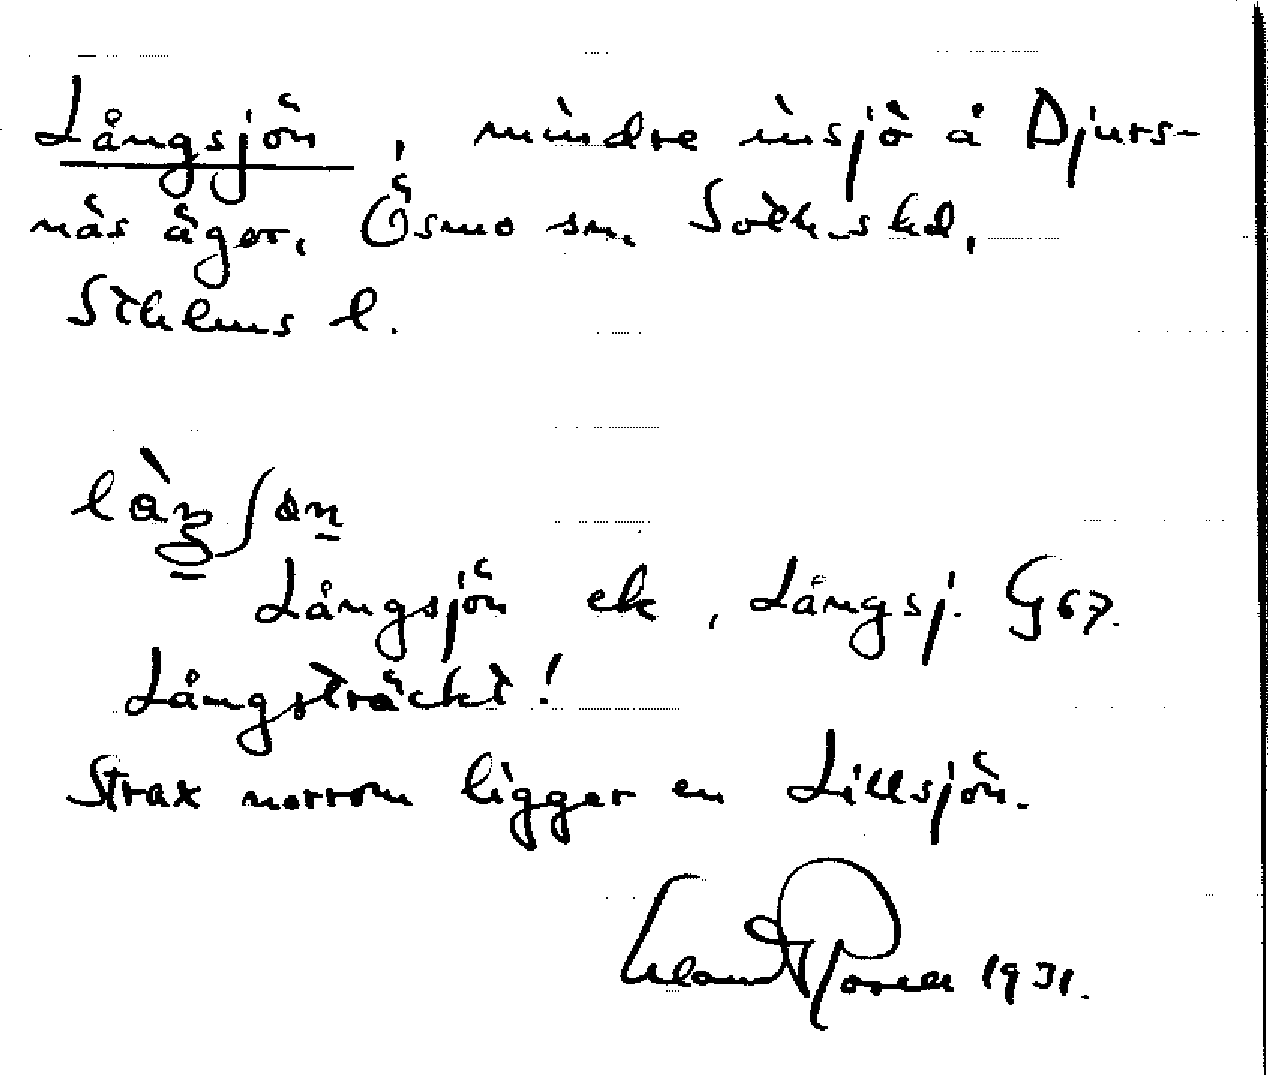 Långsjön, mindre insjö å Djurs-
näs ägor, Ösmo sn, Soth_s hd,
Sthlms l.
Långsjön ek, Långsj. G67.
Långsträckt!
Strax norrom ligger en Lillsjön.
1931.